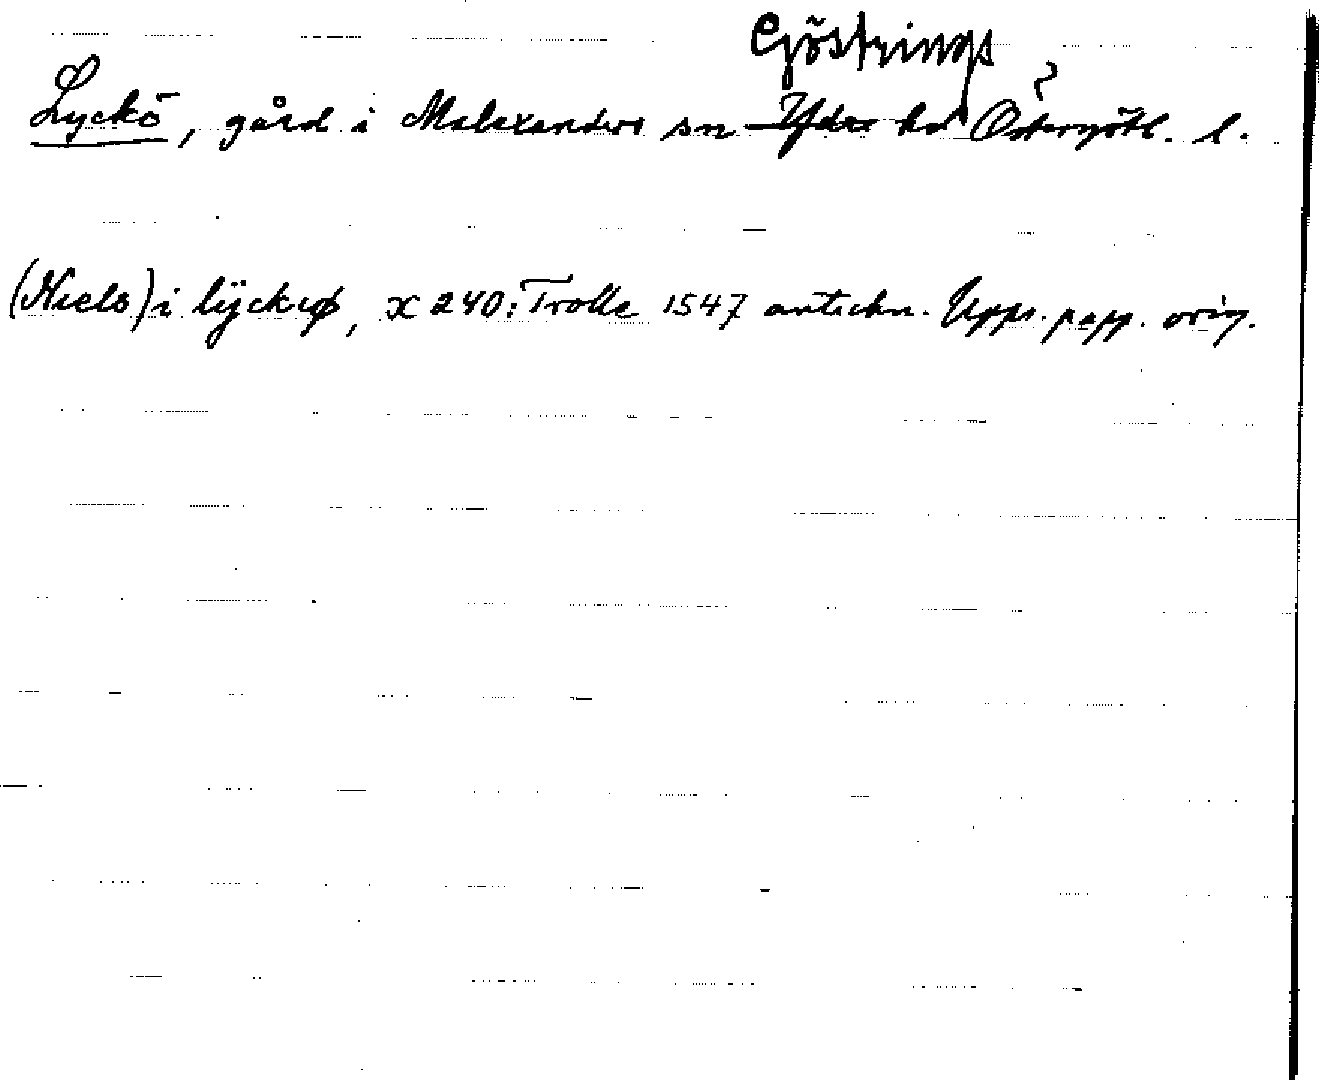 Göstrings
Lyckö, gård i Malexanders sn Ydre hd Östergötl. l.
(Niels) i lÿckeø, x 240: Trolle 1547 anteckn. Upps. papp. orig.